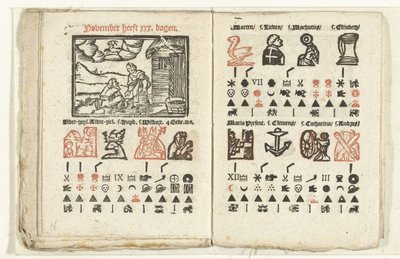 November heeft xxx. dagen.
Alder-heyl. Alder-ziel. s. Huyb. s. Willibor. 4 Gekr. ma.
IX
s. Marten/ s. Lieven/ s. Machutus/ s. Elisabeth
VII
Maria Present. s. Clemens/ s. Catharina/ s. Andries/
XII III